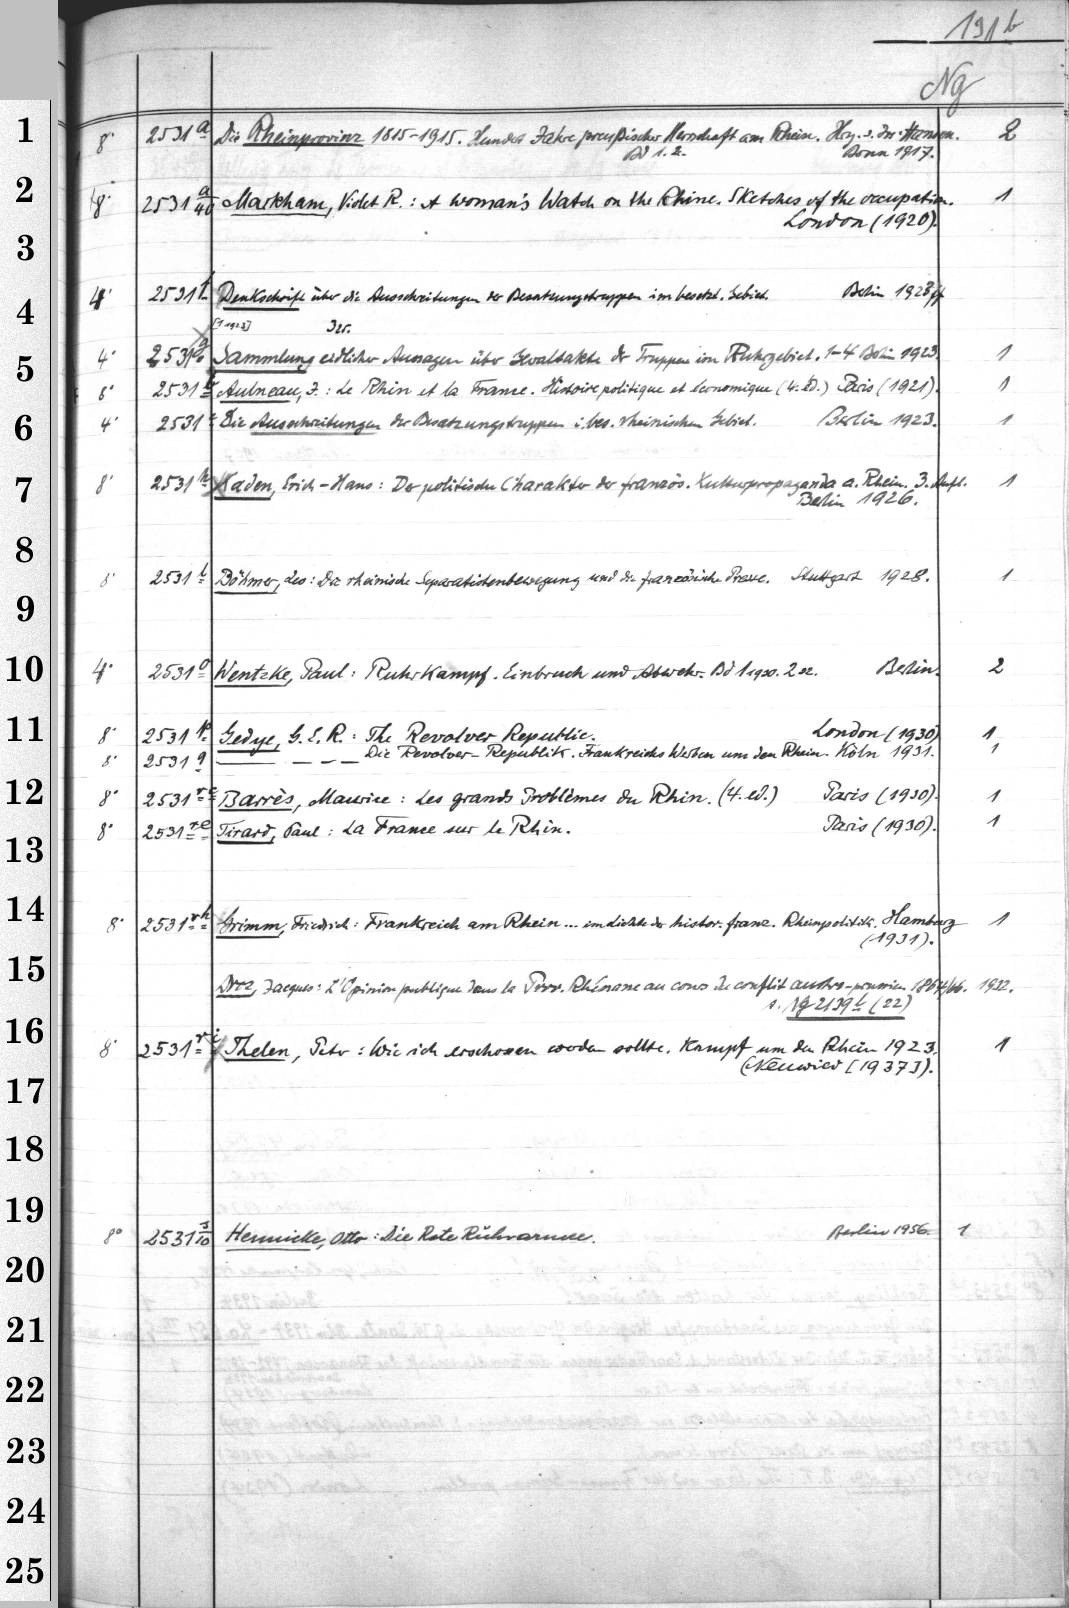 191 b
Ng
1
8° 2531 a Die Rheinprovinz 1815-1915. Hundert Jahre preußischer Herrschaft am Rhein. Hrg. v. Jos. Hansen. 2
Bd 1. 2. Bonn 1917.
2
8° 2531 a/40 Markham, Violet R.: A woman's Watch on the Rhine. Sketches of the occupation. 1
London (1920).
3
4° 2531 f Denkschrift über die Ausschreitungen der Besatzungstruppen im besetzt. Gebiet. Berlin 1923 ff
4
[1 1923]
4° 2531 Sammlung eidlicher Aussagen über Gewaltakte der Truppen im Ruhrgebiet. 1-4 Berlin 1923. 1
5
8° 2531 Aulneau, J.: Le Rhin et la France. Histoire politique et économique (4. éd.) Paris (1921). 1
4° 2531 Die Ausschreitungen der Besatzungstruppen i. bes. rheinischen Gebiet. Berlin 1923. 1
6
8° 2531 k Kaden, Erich-Hans: Der politische Charakter der französ. Kulturpropaganda a. Rhein. 3. Aufl. 1
7
Berlin 1926.
8
8° 2531 l Böhmer, Leo: Die rheinische Separatistenbewegung und die französische Presse. Stuttgart 1928. 1
9
10
4° 2531 o Wentzke, Paul: Ruhrkampf. Einbruch und Abwehr. Bd 1 1930. 2 32. Berlin. 2
11
8° 2531 p Gedye, G. E. R.: The Revolver Republic. London (1930) 1
8° 2531 q ——— — — — Die Revolver-Republik. Frankreichs Werben um den Rhein. Köln 1931. 1
12
8° 2531 r c Barrès, Maurice: Les grands Problèmes du Rhin. (4. ed.) Paris (1930). 1
8° 2531 r e Tirard, Paul: La France sur le Rhin. Paris (1930). 1
13
14
8° 2531 r h Grimm, Friedrich: Frankreich am Rhein ... im Lichte der histor. franz. Rheinpolitik. Hamburg 1
(1931).
15
Droz, Jacques: L'Opinion publique dans la Prov. Rhénane au cours du conflit austro-prussien 1864/66. 1932.
s. Ng 2139 (22)
16
8° 2531 r i Thelen, Peter: Wie ich erschossen werden sollte. Kampf um den Rhein 1923. 1
(Neuwied [1937]).
17
18
19
8° 2531 s/10 Hennicke, Otto: Die Rote Ruhrarmee. Berlin 1956. 1
20
21
22
23
24
25